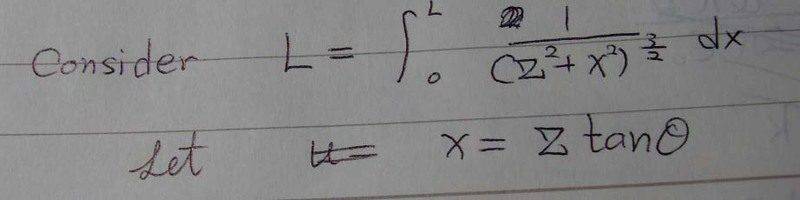 Consider L = ∫₀ᴸ 1/(z²+x²)^(3/2) dx
Let x = z tanθ